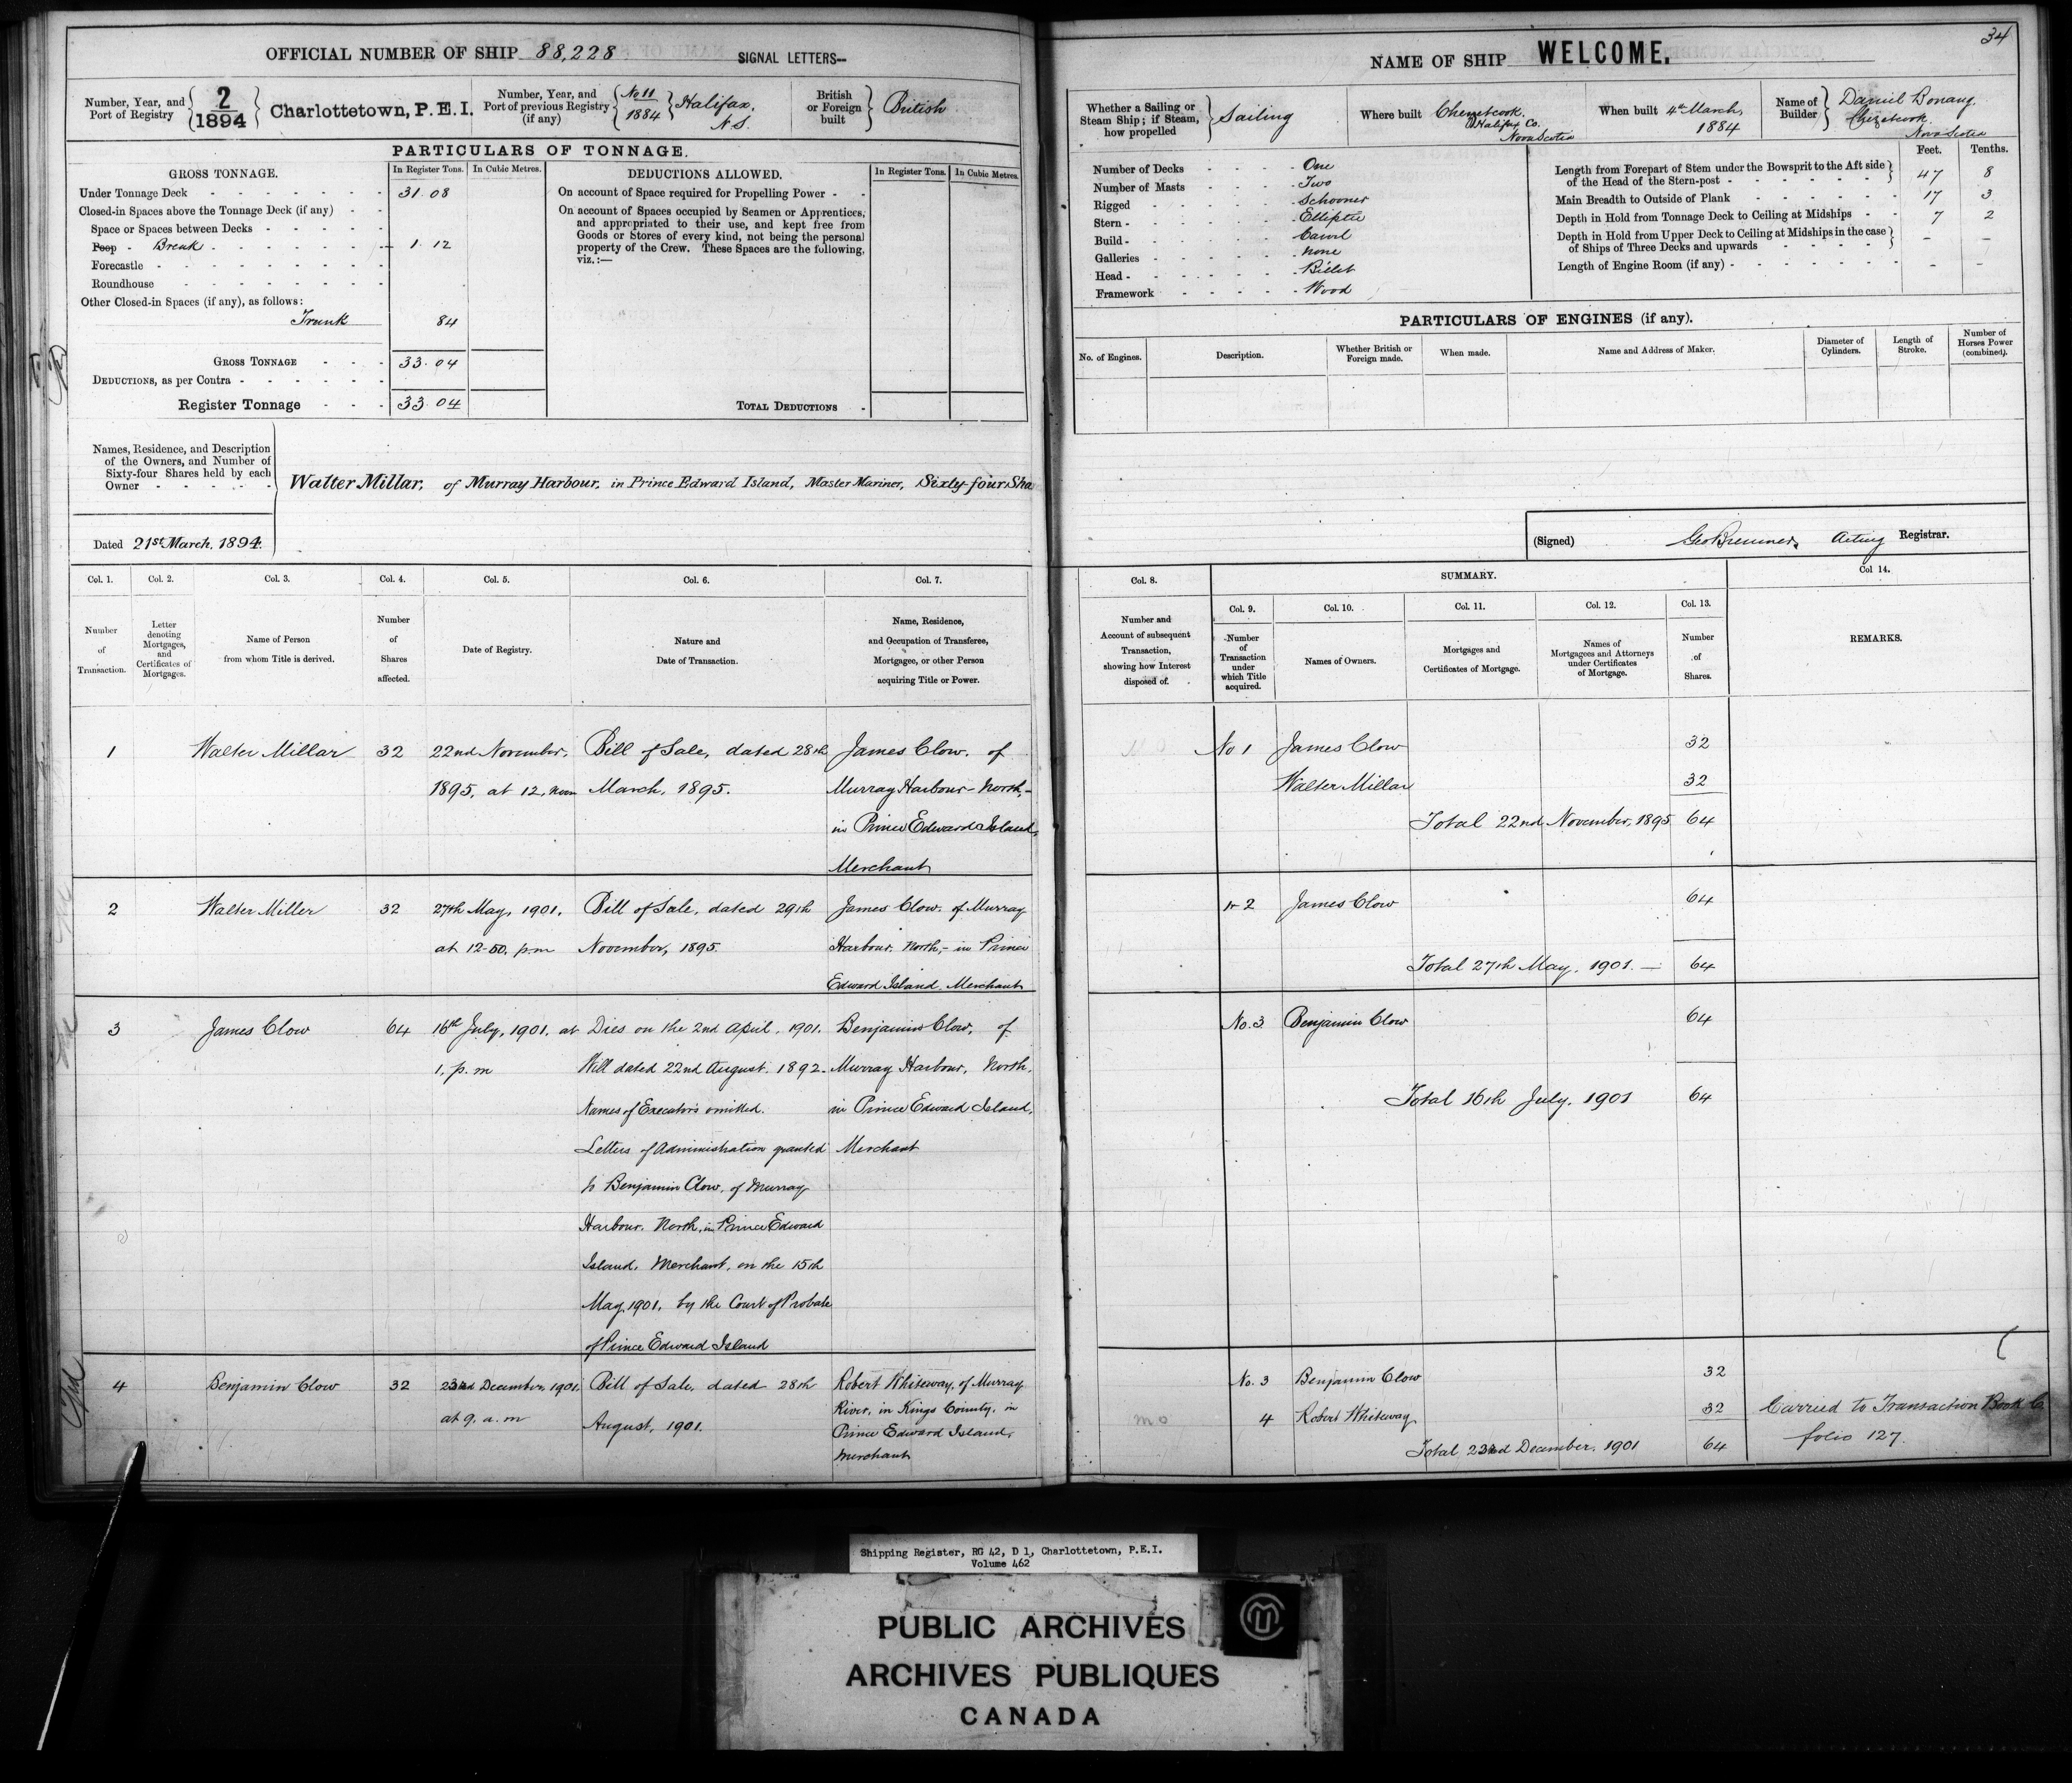 34
OFFICIAL NUMBER OF SHIP 88,228 SIGNAL LETTERS--
Number, Year, and Port of Registry 2/1894 Charlottetown, P.E.I. Number, Year, and Port of previous Registry (if any) No 11/1884 Halifax, N.S. British or Foreign built British
PARTICULARS OF TONNAGE.
GROSS TONNAGE. In Register Tons. In Cubic Metres.
Under Tonnage Deck 31.08
Closed-in Spaces above the Tonnage Deck (if any)
Space or Spaces between Decks
Poop - Break 1.12
Forecastle
Roundhouse
Other Closed-in Spaces (if any), as follows:
Trunk 84
GROSS TONNAGE 33.04
DEDUCTIONS, as per Contra
Register Tonnage 33.04
DEDUCTIONS ALLOWED. In Register Tons. In Cubic Metres.
On account of Space required for Propelling Power
On account of Spaces occupied by Seamen or Apprentices,
and appropriated to their use, and kept free from
Goods or Stores of every kind, not being the personal
property of the Crew. These Spaces are the following,
viz.:—
TOTAL DEDUCTIONS
NAME OF SHIP WELCOME.
Whether a Sailing or Steam Ship; if Steam, how propelled Sailing Where built Chezetcook, Halifax Co. Nova Scotia When built 4th March, 1884 Name of Builder Daniel Bonang, Chezetcook Nova Scotia
Number of Decks One
Number of Masts Two
Rigged Schooner
Stern Elliptic
Build Carvel
Galleries None
Head Billet
Framework Wood
Feet. Tenths.
Length from Forepart of Stem under the Bowsprit to the Aft side
of the Head of the Stern-post 47 8
Main Breadth to Outside of Plank 17 3
Depth in Hold from Tonnage Deck to Ceiling at Midships 7 2
Depth in Hold from Upper Deck to Ceiling at Midships in the case
of Ships of Three Decks and upwards – –
Length of Engine Room (if any) – –
PARTICULARS OF ENGINES (if any).
No. of Engines. Description. Whether British or Foreign made. When made. Name and Address of Maker. Diameter of Cylinders. Length of Stroke. Number of Horses Power (combined).
Names, Residence, and Description
of the Owners, and Number of
Sixty-four Shares held by each
Owner
Walter Millar, of Murray Harbour, in Prince Edward Island, Master Mariner, Sixty-four Sha
Dated 21st March, 1894.
(Signed) Geo Bremner, Acting Registrar.
Col. 1. Col. 2. Col. 3. Col. 4. Col. 5. Col. 6. Col. 7.
Number of Transaction.
Letter denoting Mortgages, and Certificates of Mortgages.
Name of Person from whom Title is derived.
Number of Shares affected.
Date of Registry.
Nature and Date of Transaction.
Name, Residence, and Occupation of Transferee, Mortgagee, or other Person acquiring Title or Power.
Col. 8. SUMMARY. Col 14.
Col. 9. Col. 10. Col. 11. Col. 12. Col. 13.
Number and Account of subsequent Transaction, showing how Interest disposed of.
Number of Transaction under which Title acquired.
Names of Owners.
Mortgages and Certificates of Mortgage.
Names of Mortgagees and Attorneys under Certificates of Mortgage.
Number of Shares.
REMARKS.
1 Walter Millar 32 22nd November, Bill of Sale, dated 28th James Clow, of
1895, at 12, noon March, 1895. Murray Harbour-North,-
in Prince Edward Island,
Merchant
No 1 James Clow 32
Walter Millar 32
Total 22nd November, 1895 64
2 Walter Miller 32 27th May, 1901, Bill of Sale, dated 29th James Clow, of Murray
at 12-50, p.m November, 1895. Harbour, North,- in Prince
Edward Island, Merchant
2 James Clow 64
Total 27th May, 1901. — 64
3 James Clow 64 16th July, 1901, at Dies on the 2nd April, 1901. Benjamin Clow, of
1, p.m Will dated 22nd August, 1892- Murray Harbour, North,
Names of Executors omitted. in Prince Edward Island,
Letters of Administration granted Merchant
to Benjamin Clow, of Murray
Harbour, North, in Prince Edward
Island, Merchant, on the 15th
May, 1901, by the Court of Probate
of Prince Edward Island
No. 3 Benjamin Clow 64
Total 16th July, 1901 64
4 Benjamin Clow 32 23rd December, 1901, Bill of Sale, dated 28th Robert Whiteway, of Murray
at 9. a.m August, 1901. River, in Kings County, in
Prince Edward Island,
Merchant
No. 3 Benjamin Clow 32
4 Robert Whiteway 32 Carried to Transaction Book
Total December, 1901 64 folio 127.
Shipping Register, RG 42, D 1, Charlottetown, P.E.I.
Volume 462
PUBLIC ARCHIVES
ARCHIVES PUBLIQUES
CANADA